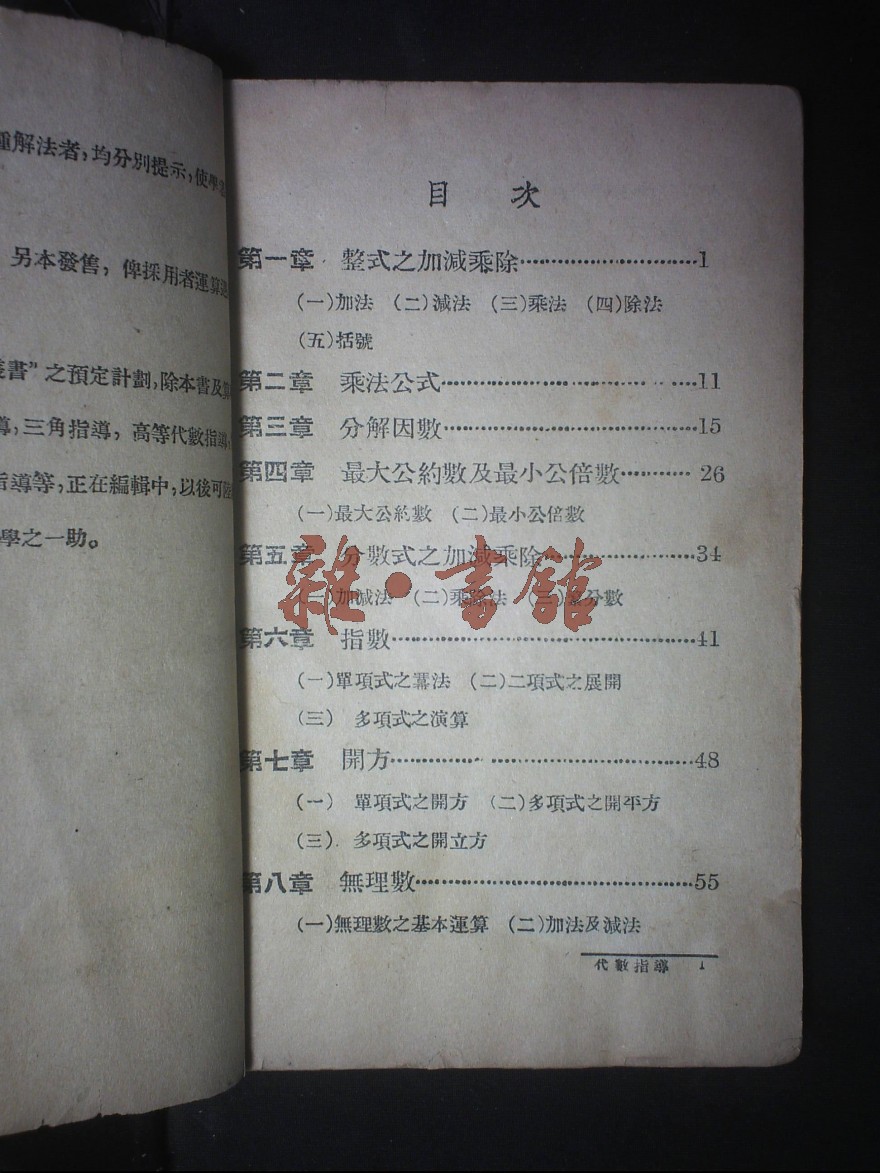 種解法者,均分別提示,使學
另本發售,俾採用者運算
叢書”之預定計劃,除本書及算
導,三角指導,高等代數指導,
指導等,正在編輯中,以後可陸
學之一助。
目 次
第一章 整式之加減乘除……………………1
(一)加法 (二)減法 (三)乘法 (四)除法
(五)括號
第二章 乘法公式……………………11
第三章 分解因數……………………15
第四章 最大公約數及最小公倍數………26
(一)最大公約數 (二)最小公倍數
第五章 分數式之加減乘除……………34
(一)加減法 (二)乘除法 (三)繁分數
第六章 指數……………………41
(一)單項式之羃法 (二)二項式之展開
(三) 多項式之演算
第七章 開方……………………48
(一) 單項式之開方 (二)多項式之開平方
(三) 多項式之開立方
第八章 無理數……………………55
(一)無理數之基本運算 (二)加法及減法
代數指導 1
雜·書館